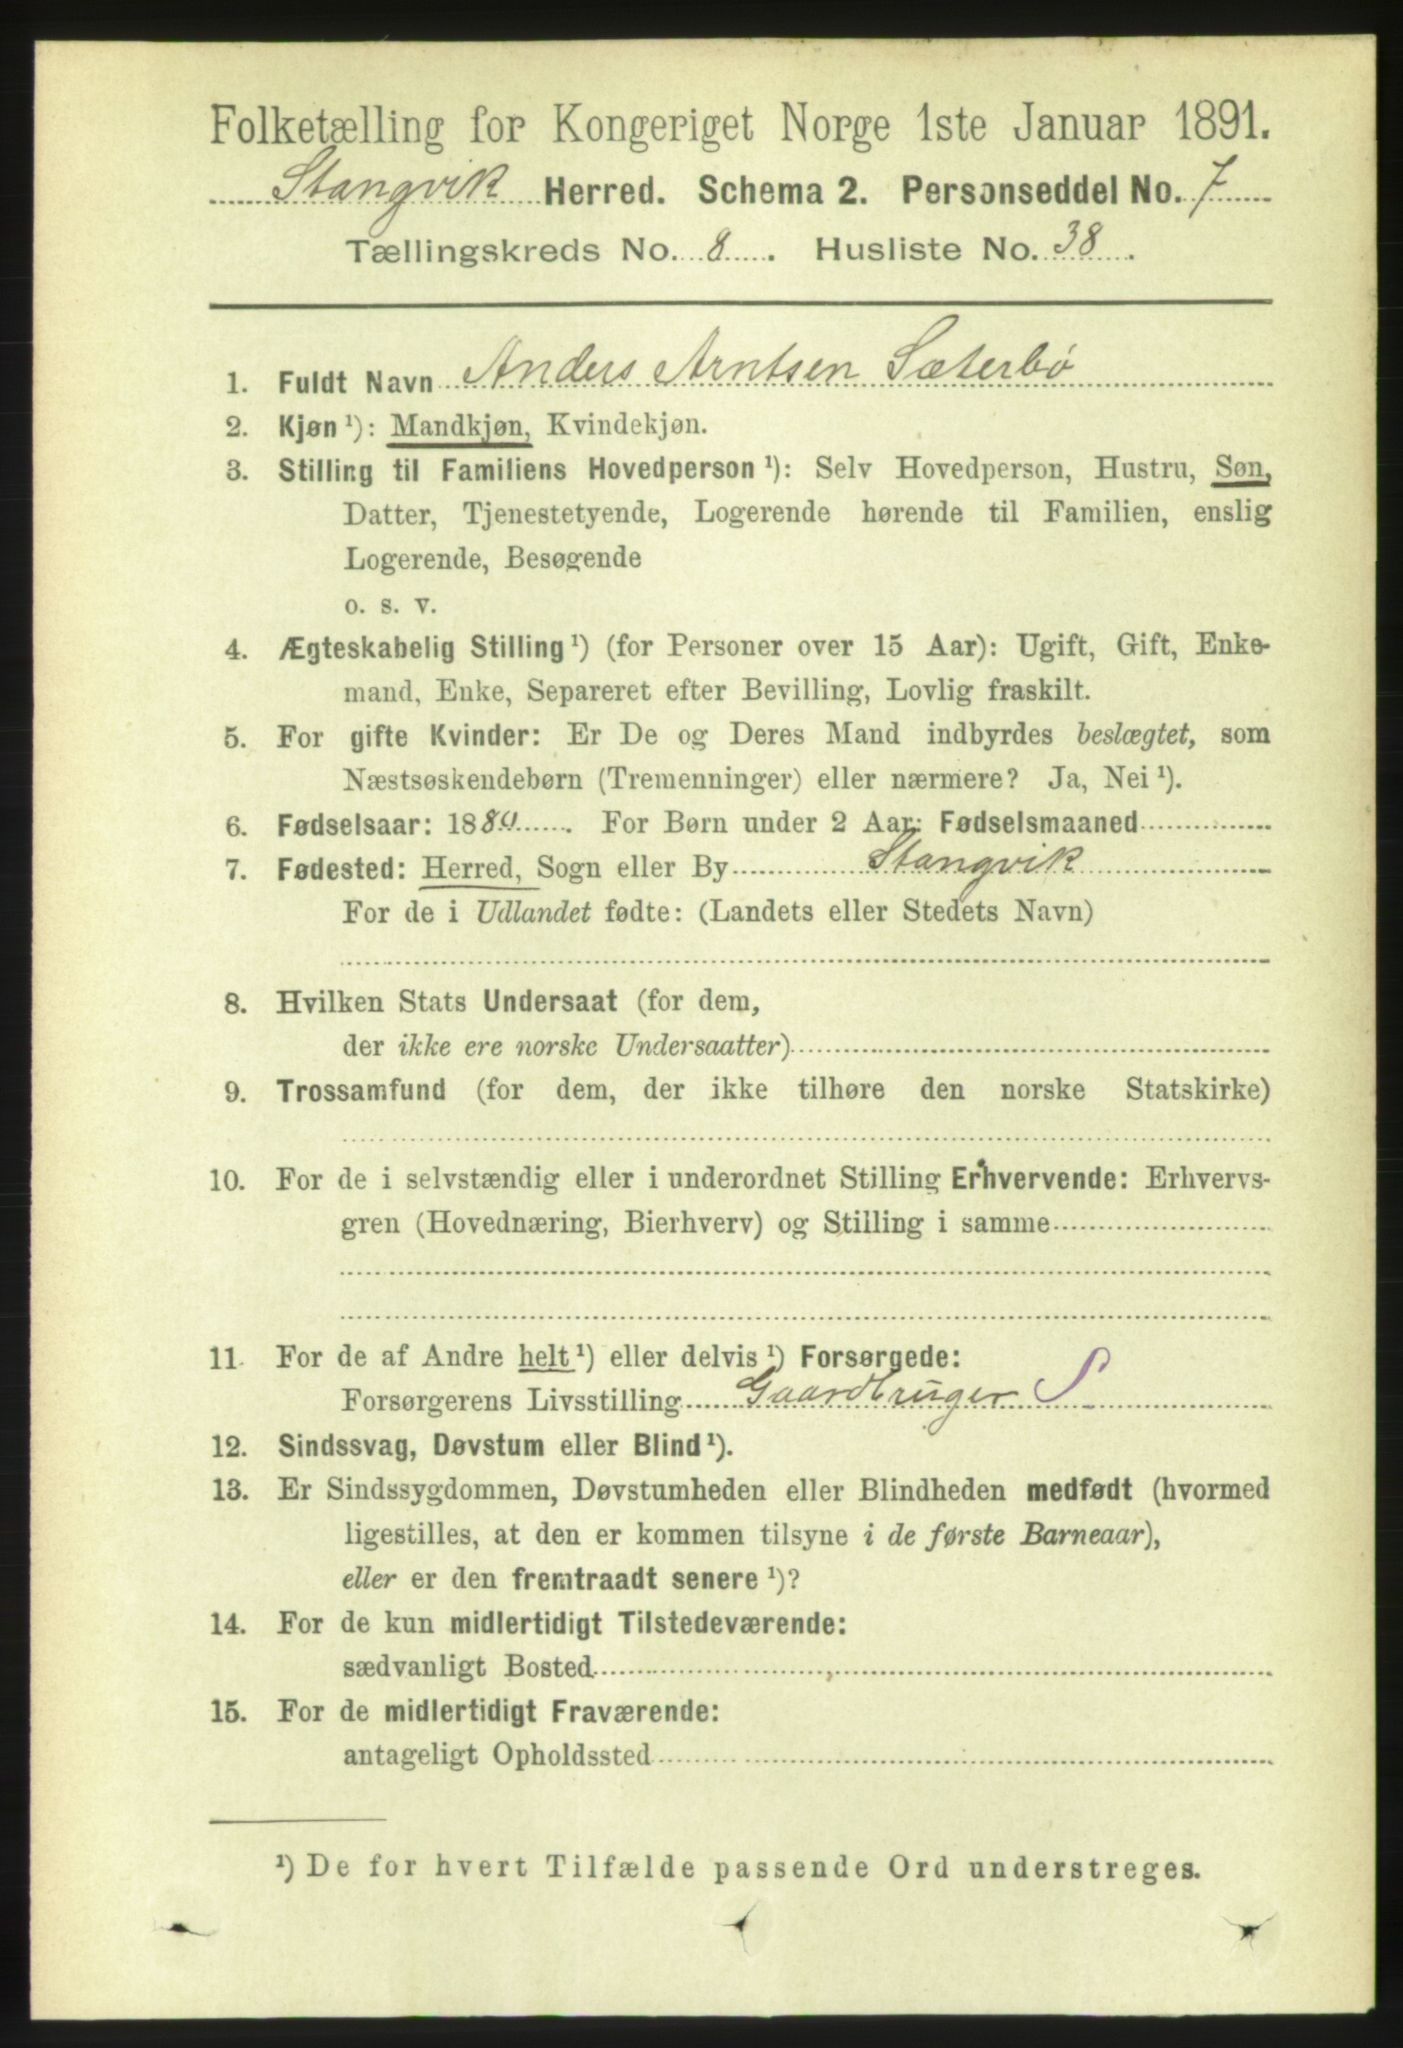 Folketælling for Kongeriget Norge 1ste Januar 1891.
Stangvik Herred. Schema 2. Personseddel No. 7
Tællingskreds No. 8. Husliste No. 38.
1. Fuldt Navn Anders Arntsen Sæterbø
2. Kjøn ¹): Mandkjøn, Kvindekjøn.
3. Stilling til Familiens Hovedperson ¹): Selv Hovedperson, Hustru, Søn,
Datter, Tjenestetyende, Logerende hørende til Familien, enslig
Logerende, Besøgende
o. s. v.
4. Ægteskabelig Stilling ¹) (for Personer over 15 Aar): Ugift, Gift, Enke-
mand, Enke, Separeret efter Bevilling, Lovlig fraskilt.
5. For gifte Kvinder: Er De og Deres Mand indbyrdes beslægtet, som
Næstsøskendebørn (Tremenninger) eller nærmere? Ja, Nei ¹).
6. Fødselsaar: 1880. For Børn under 2 Aar: Fødselsmaaned
7. Fødested: Herred, Sogn eller By Stangvik
For de i Udlandet fødte: (Landets eller Stedets Navn)
8. Hvilken Stats Undersaat (for dem,
der ikke ere norske Undersaatter)
9. Trossamfund (for dem, der ikke tilhøre den norske Statskirke)
10. For de i selvstændig eller i underordnet Stilling Erhvervende: Erhvervs-
gren (Hovednæring, Bierhverv) og Stilling i samme
11. For de af Andre helt ¹) eller delvis ¹) Forsørgede:
Forsørgerens Livsstilling Gaardbruger S
12. Sindssvag, Døvstum eller Blind ¹).
13. Er Sindssygdommen, Døvstumheden eller Blindheden medfødt (hvormed
ligestilles, at den er kommen tilsyne i de første Barneaar),
eller er den fremtraadt senere ¹)?
14. For de kun midlertidigt Tilstedeværende:
sædvanligt Bosted
15. For de midlertidigt Fraværende:
antageligt Opholdssted
¹) De for hvert Tilfælde passende Ord understreges.